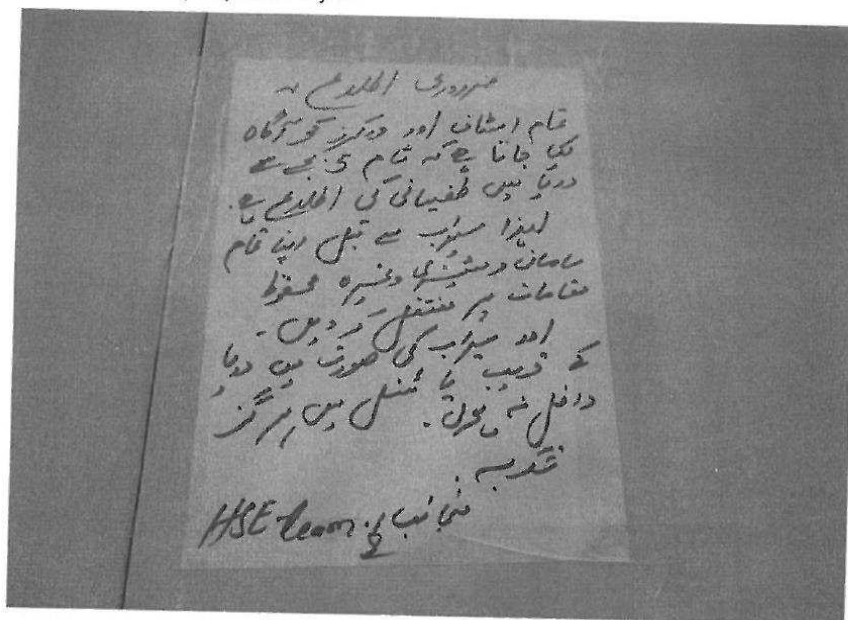 ضروری اطلاع ۔
تمام اسٹاف اور ورکرز کو آگاہ
کیا جاتا ہے کہ شام 5 بجے سے
دریا میں طغیانی کی اطلاع ہے.
لہذا سیلاب سے قبل اپنا تمام
سامان و مشینری وغیرہ محفوظ
مقامات پر منتقل کر دیں۔
اور سیلاب کی صورت میں دریا
کے قریب یا ٹنل میں ہرگز
داخل نہ ہوں.
شکریہ.
منجانب HSE team: